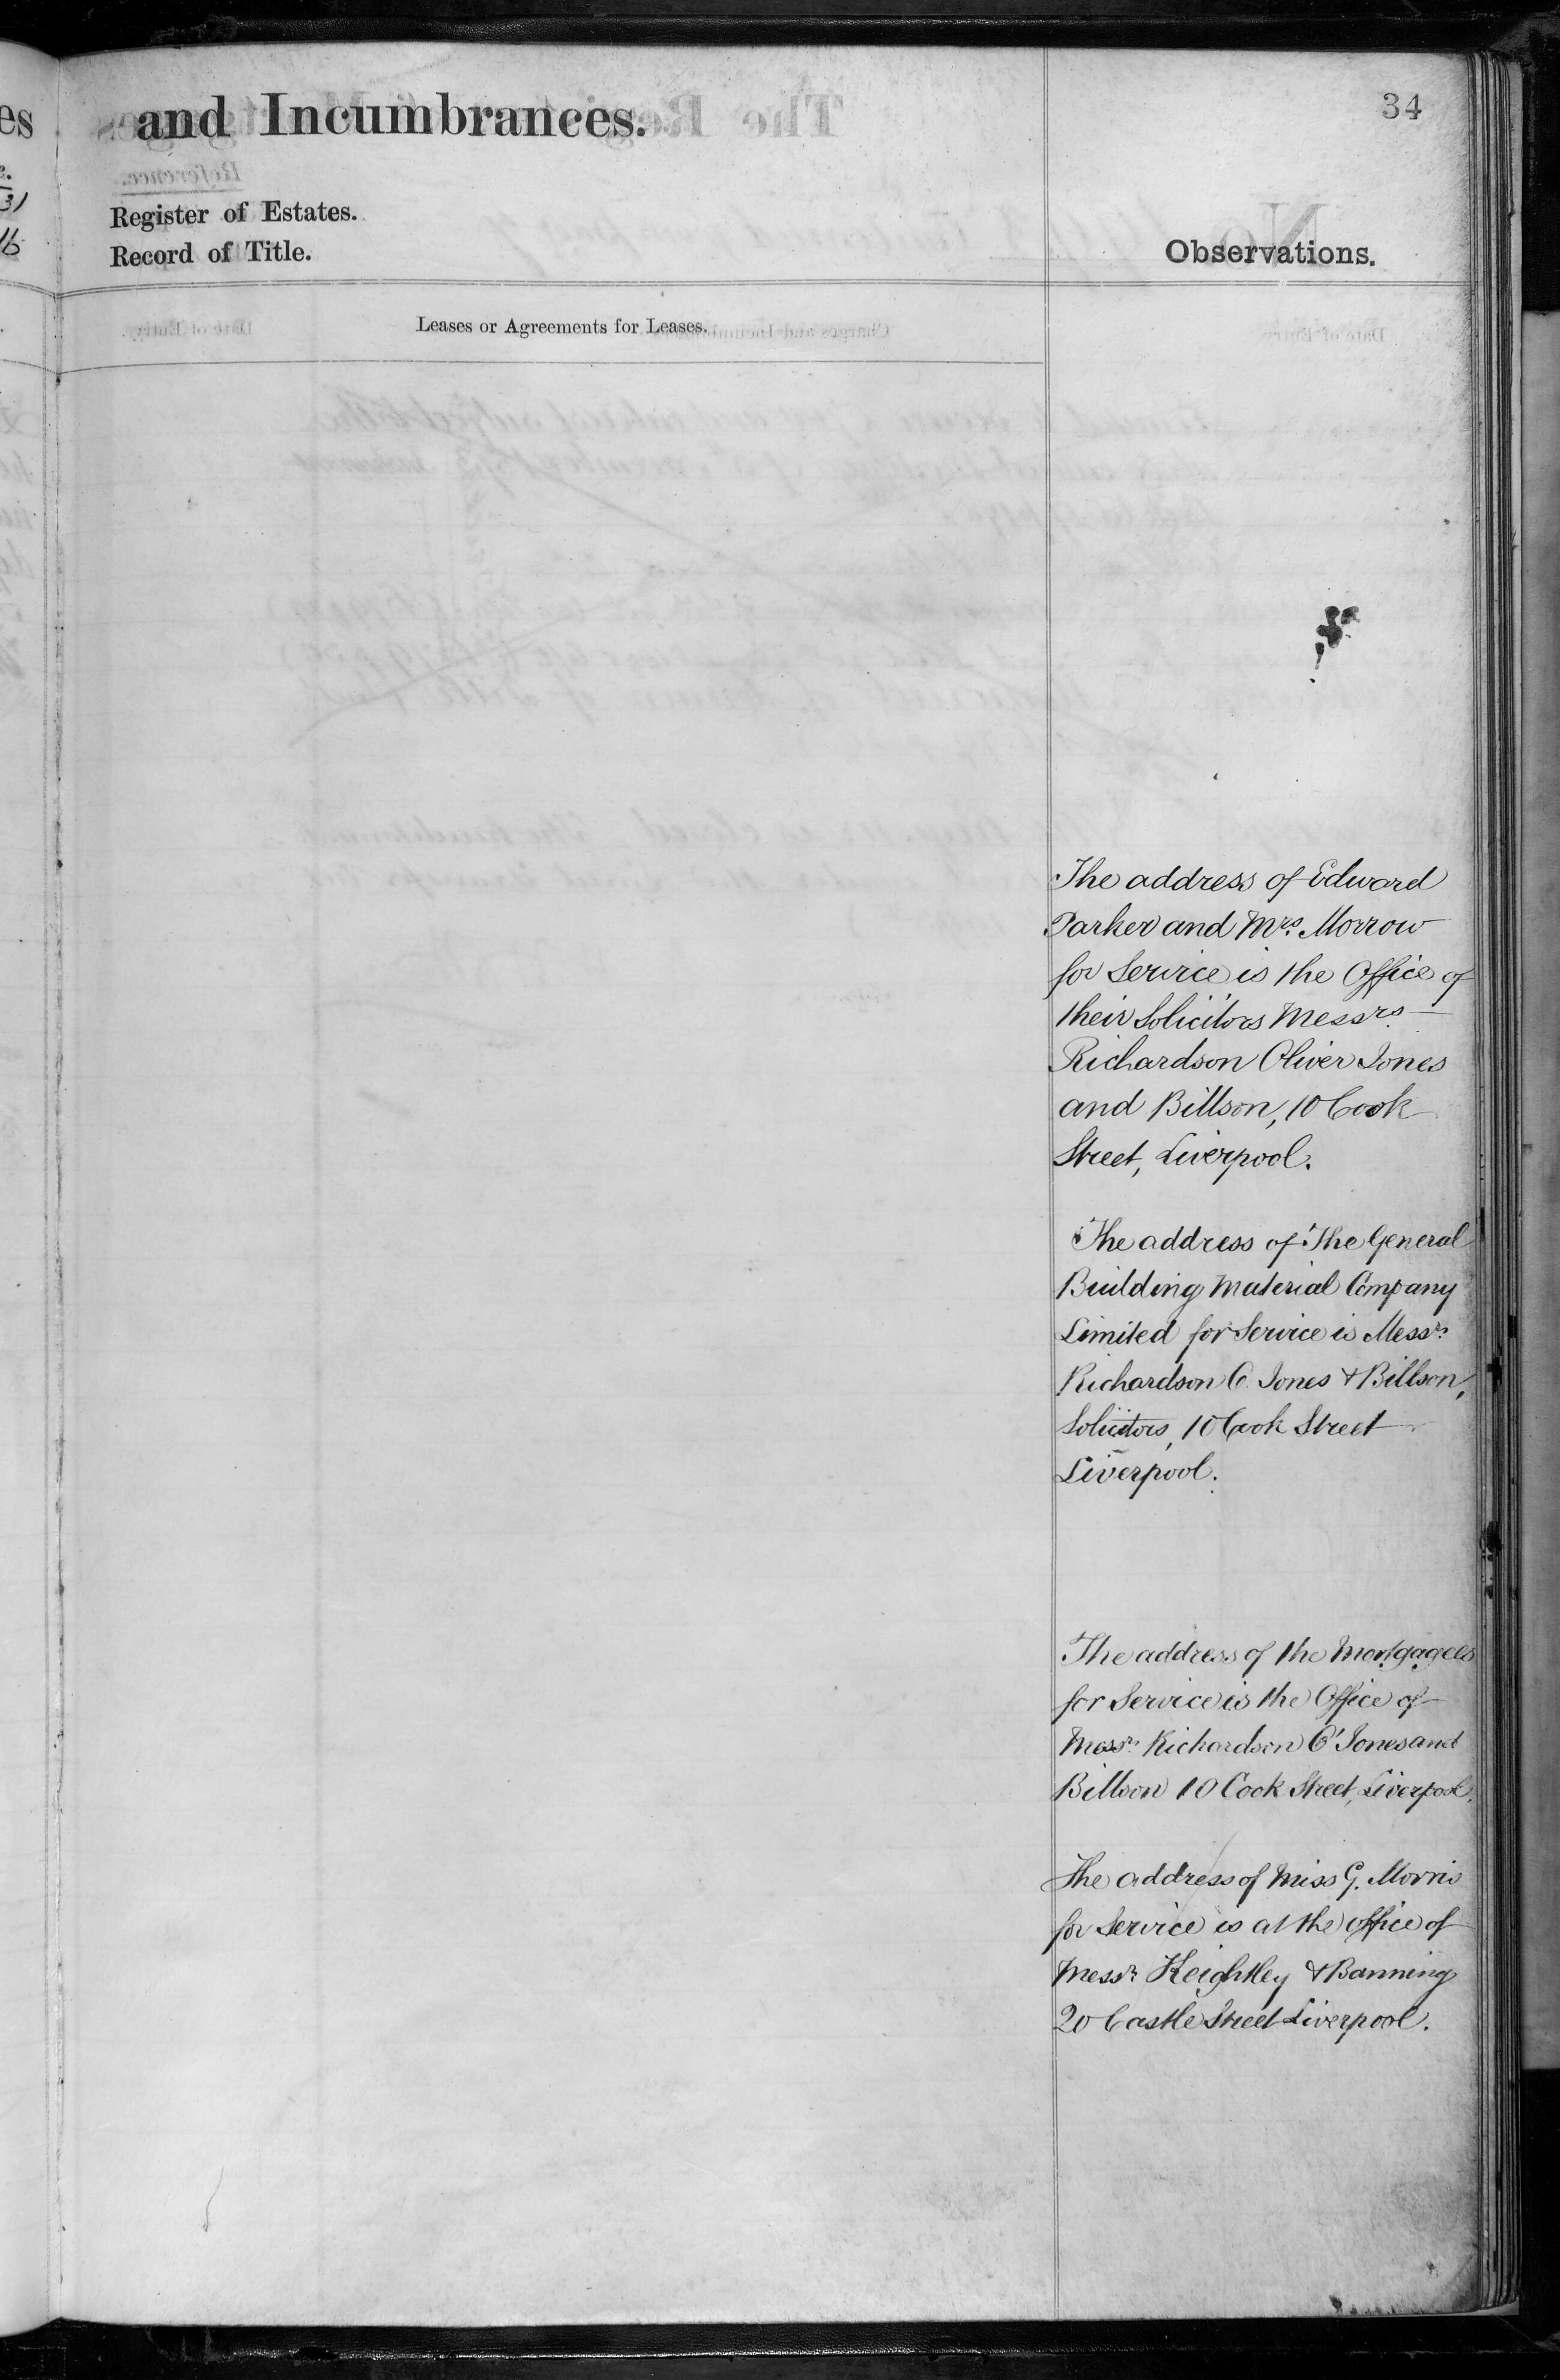 and Incumbrances.
34
Register of Estates.
Record of Title.
Observations.
Leases or Agreements for Leases.
The address of Edward
Parker and Mrs. Morrow
for Service is the Office of
their Solicitors Messrs.
Richardson Oliver Jones
and Billson, 10 Cook
Street, Liverpool.
The address of The General
Building Material Company
Limited for Service is Messrs.
Richardson O. Jones & Billson,
Solicitors, 10 Cook Street
Liverpool.
The address of the Mortgagees
for Service is the Office of
Messrs. Richardson O. Jones and
Billson 10 Cook Street, Liverpool.
The address of Miss G. Morris
for Service is at the office of
Messrs. Keightley & Banning
20 Castle Street Liverpool.